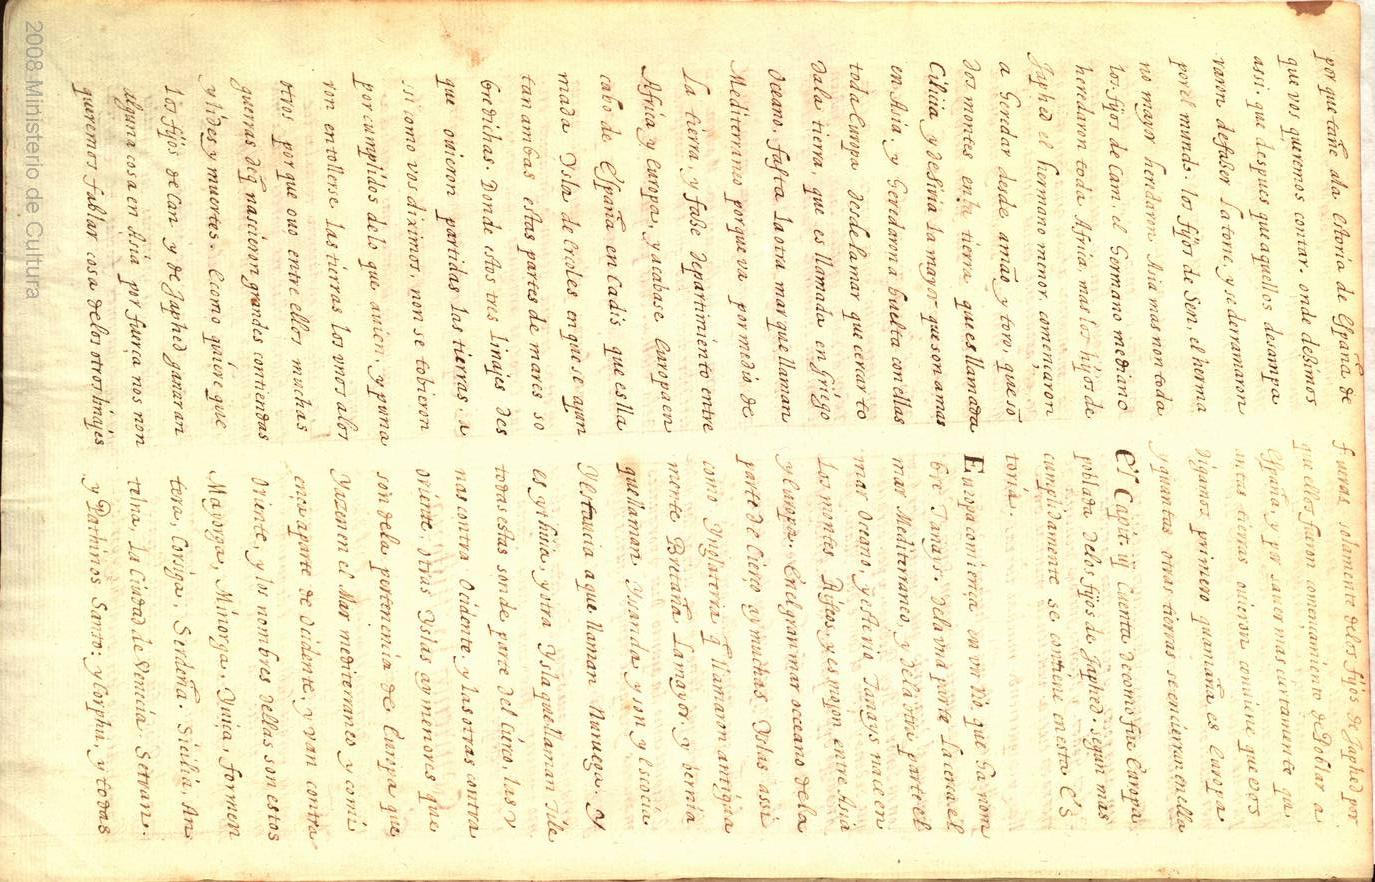 por que tañe ala estoria de España de
que vos queremos contar. onde dezimos
assi. que despues que aquellos desampa
raron defazer la torre, y se derramaron
por el mundo. los fijos de Sen. el herma
no mayor heredaron Asia mas non toda
los fijos de Cam. el Germano mediano
heredaron toda Africa. mas los hijos de
Japhed el hermano menor. comencaron
a Geredar desde amão y toro, que so
dos montes en la tierra que es llamada
Cilicia y de Siria la mayor que son amas
en Asia. y Geredaron a buelta con ellas
toda Europa desde la mar que cerca to
dala tierra, que es llamada en Griego
Oceano. fasta la otra mar que llaman
Mediterraneo porque va por medio de
la tierra. y faze departimiento entre
Africa y Europa, y acabase Europa en
cabo de España en Cadis que es lla
mada Ysla de Ercoles en que se ajun
tan ambas estas partes de mares so
bredichas. Donde estos tres linajes des
que ovieron partidas las tierras. a
si como vos diximos. non se tobieron
por cumplidos delo que avien. y puna
ron entollerse las tierras los unos alos
otros por que ovo entre ellos muchas
guerras dēq̃ nacieron grandes contiendas
y lides y muertes. Ecomo quiere que
los fijos de Can y de Japhed ganaran
alguna cosa en Asia por fuerça nos non
queremos fablar cosa delos otros linajes
f. ueras, solamente delos fijos de Japhed por
que ellos fueron començamiento de Poblar a
España, y por saver mas ciertamente que
tierras ovieron conviene que vos
digamos primero quamaña es Europa
y quantas otras tierras se encierran en ella
El Capit. iij Cuenta de como fue Europa
poblada delos fijos de Japhed. segun mas
cumplidamente se contiene en esta Es
toria.
Europa comiença en un Rio que ha nom
bre Tanays. dela una parte la cerca el
mar Mediterraneo, y de la otra parte el
mar Oceano. y este rio Tanays nace en
los montes Rifeos, y es mojon entre Asia
y Europa. En el gran mar occeano de la
parte de Cierço ay muchas Yslas assi
como Ynglaterra q̃ llamaron antigua
mente Bretaña la mayor y bernia
que llaman Yrlanda y sin y escocia
Ysbrucia a que llaman Nuruega. Y
es y Suia, y otra Ysla que llaman Tile
todas estas son de parte del Cierço. las v
nas contra Ocidente, y las otras contra
oriente. otras Yslas ay menores que
son dela pertenencia de Europa que
Yazen en el Mar mediterraneo y comi
ença aparte de Ocidente. y van contra
Oriente, y los nombres dellas son estos
Mayorga, Minorga, Yuiça, formen
tera, Corçiga, Serdeña. Sicilia. An
tolna, la Ciudad de Venecia. Setran.
y Pathmos Santo. y lorphu. y todas